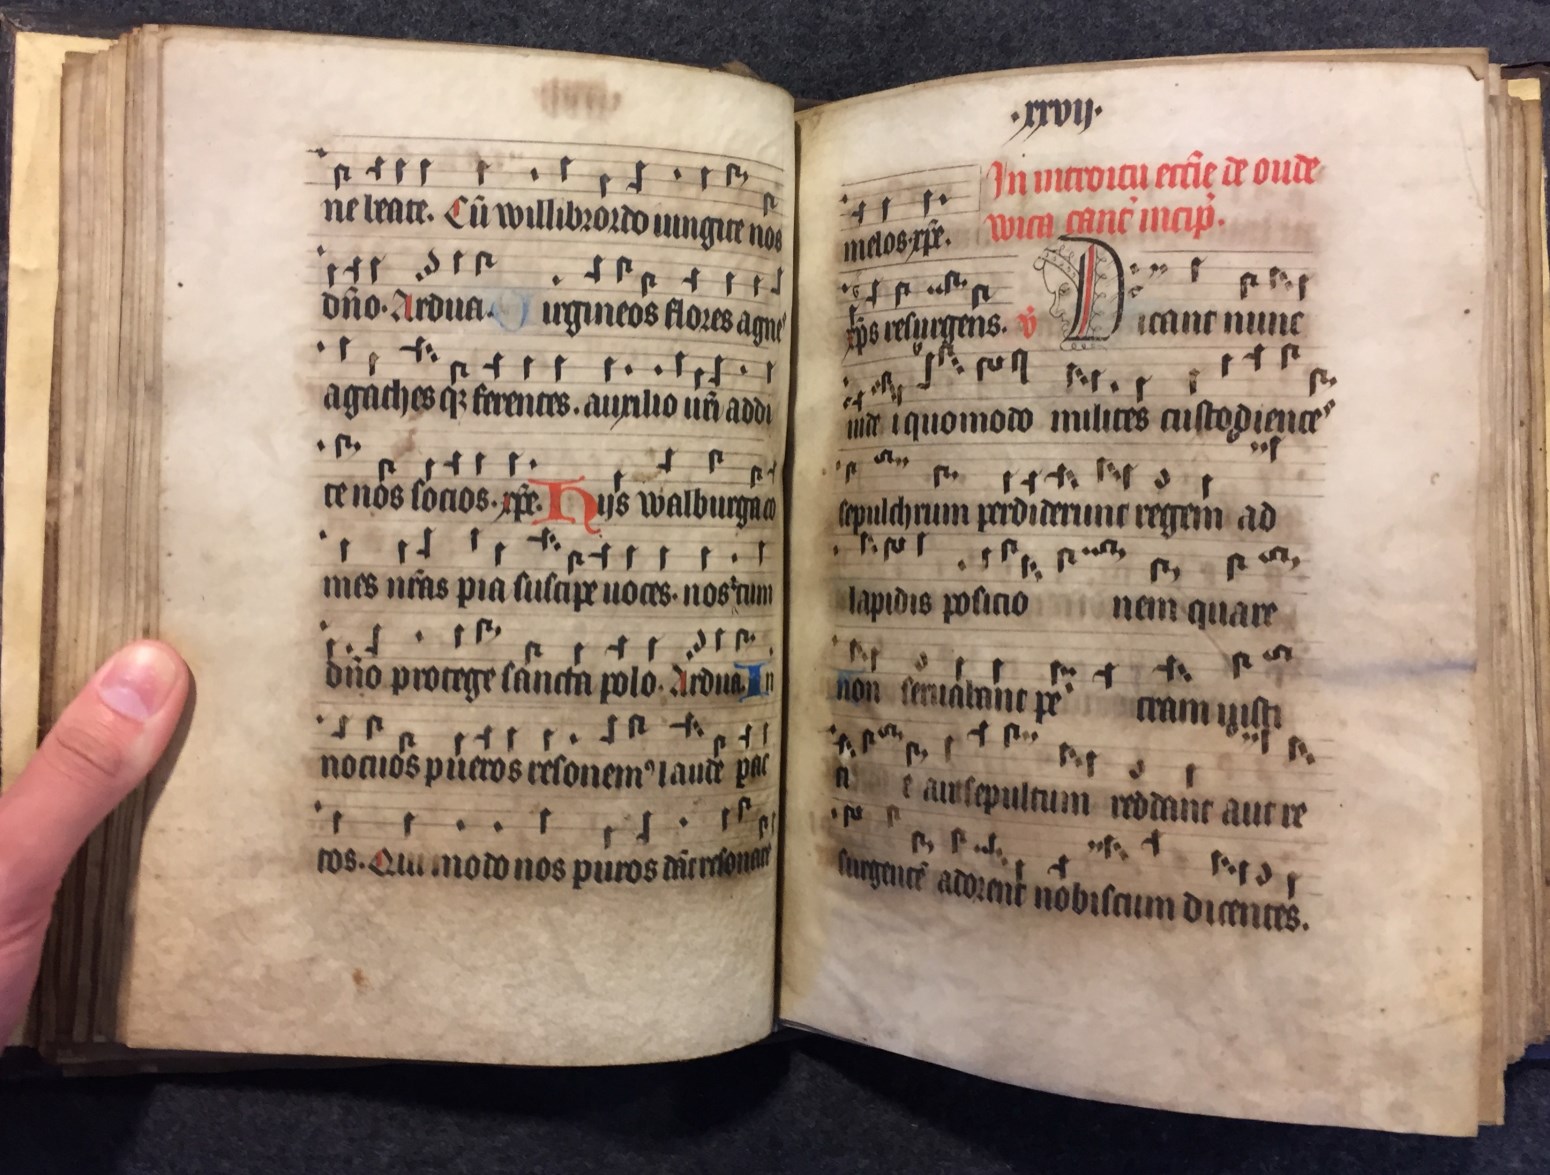 ne leate. Cū willibrordo iungite nos
dn̄o. Ardua. irgineos flores agne
agathes qꝫ ferentes. auxilio ur̄i addi
te nos socios. xp̄e. Hijs walburga co
mes nr̄as pia suscipe uoces. nos tum
dn̄o protege sancta polo. Ardua. In
nocuos pueros resonemꝰ laude
tos. Qui modo nos puros dāt resonare
.xxvij.
In introitu ecc̄ie de oude
wica canť incip̄.
melos xp̄e.
xp̄s resurgens. v̄ Dicant nunc
iude i quomodo milites custodientes
sepulchrum perdiderunt regem ad
lapidis positio nem quare
non seruabant pe tram iusti
ti e aut sepultum reddant aut re
surgentē adorent nobiscum dicentes.